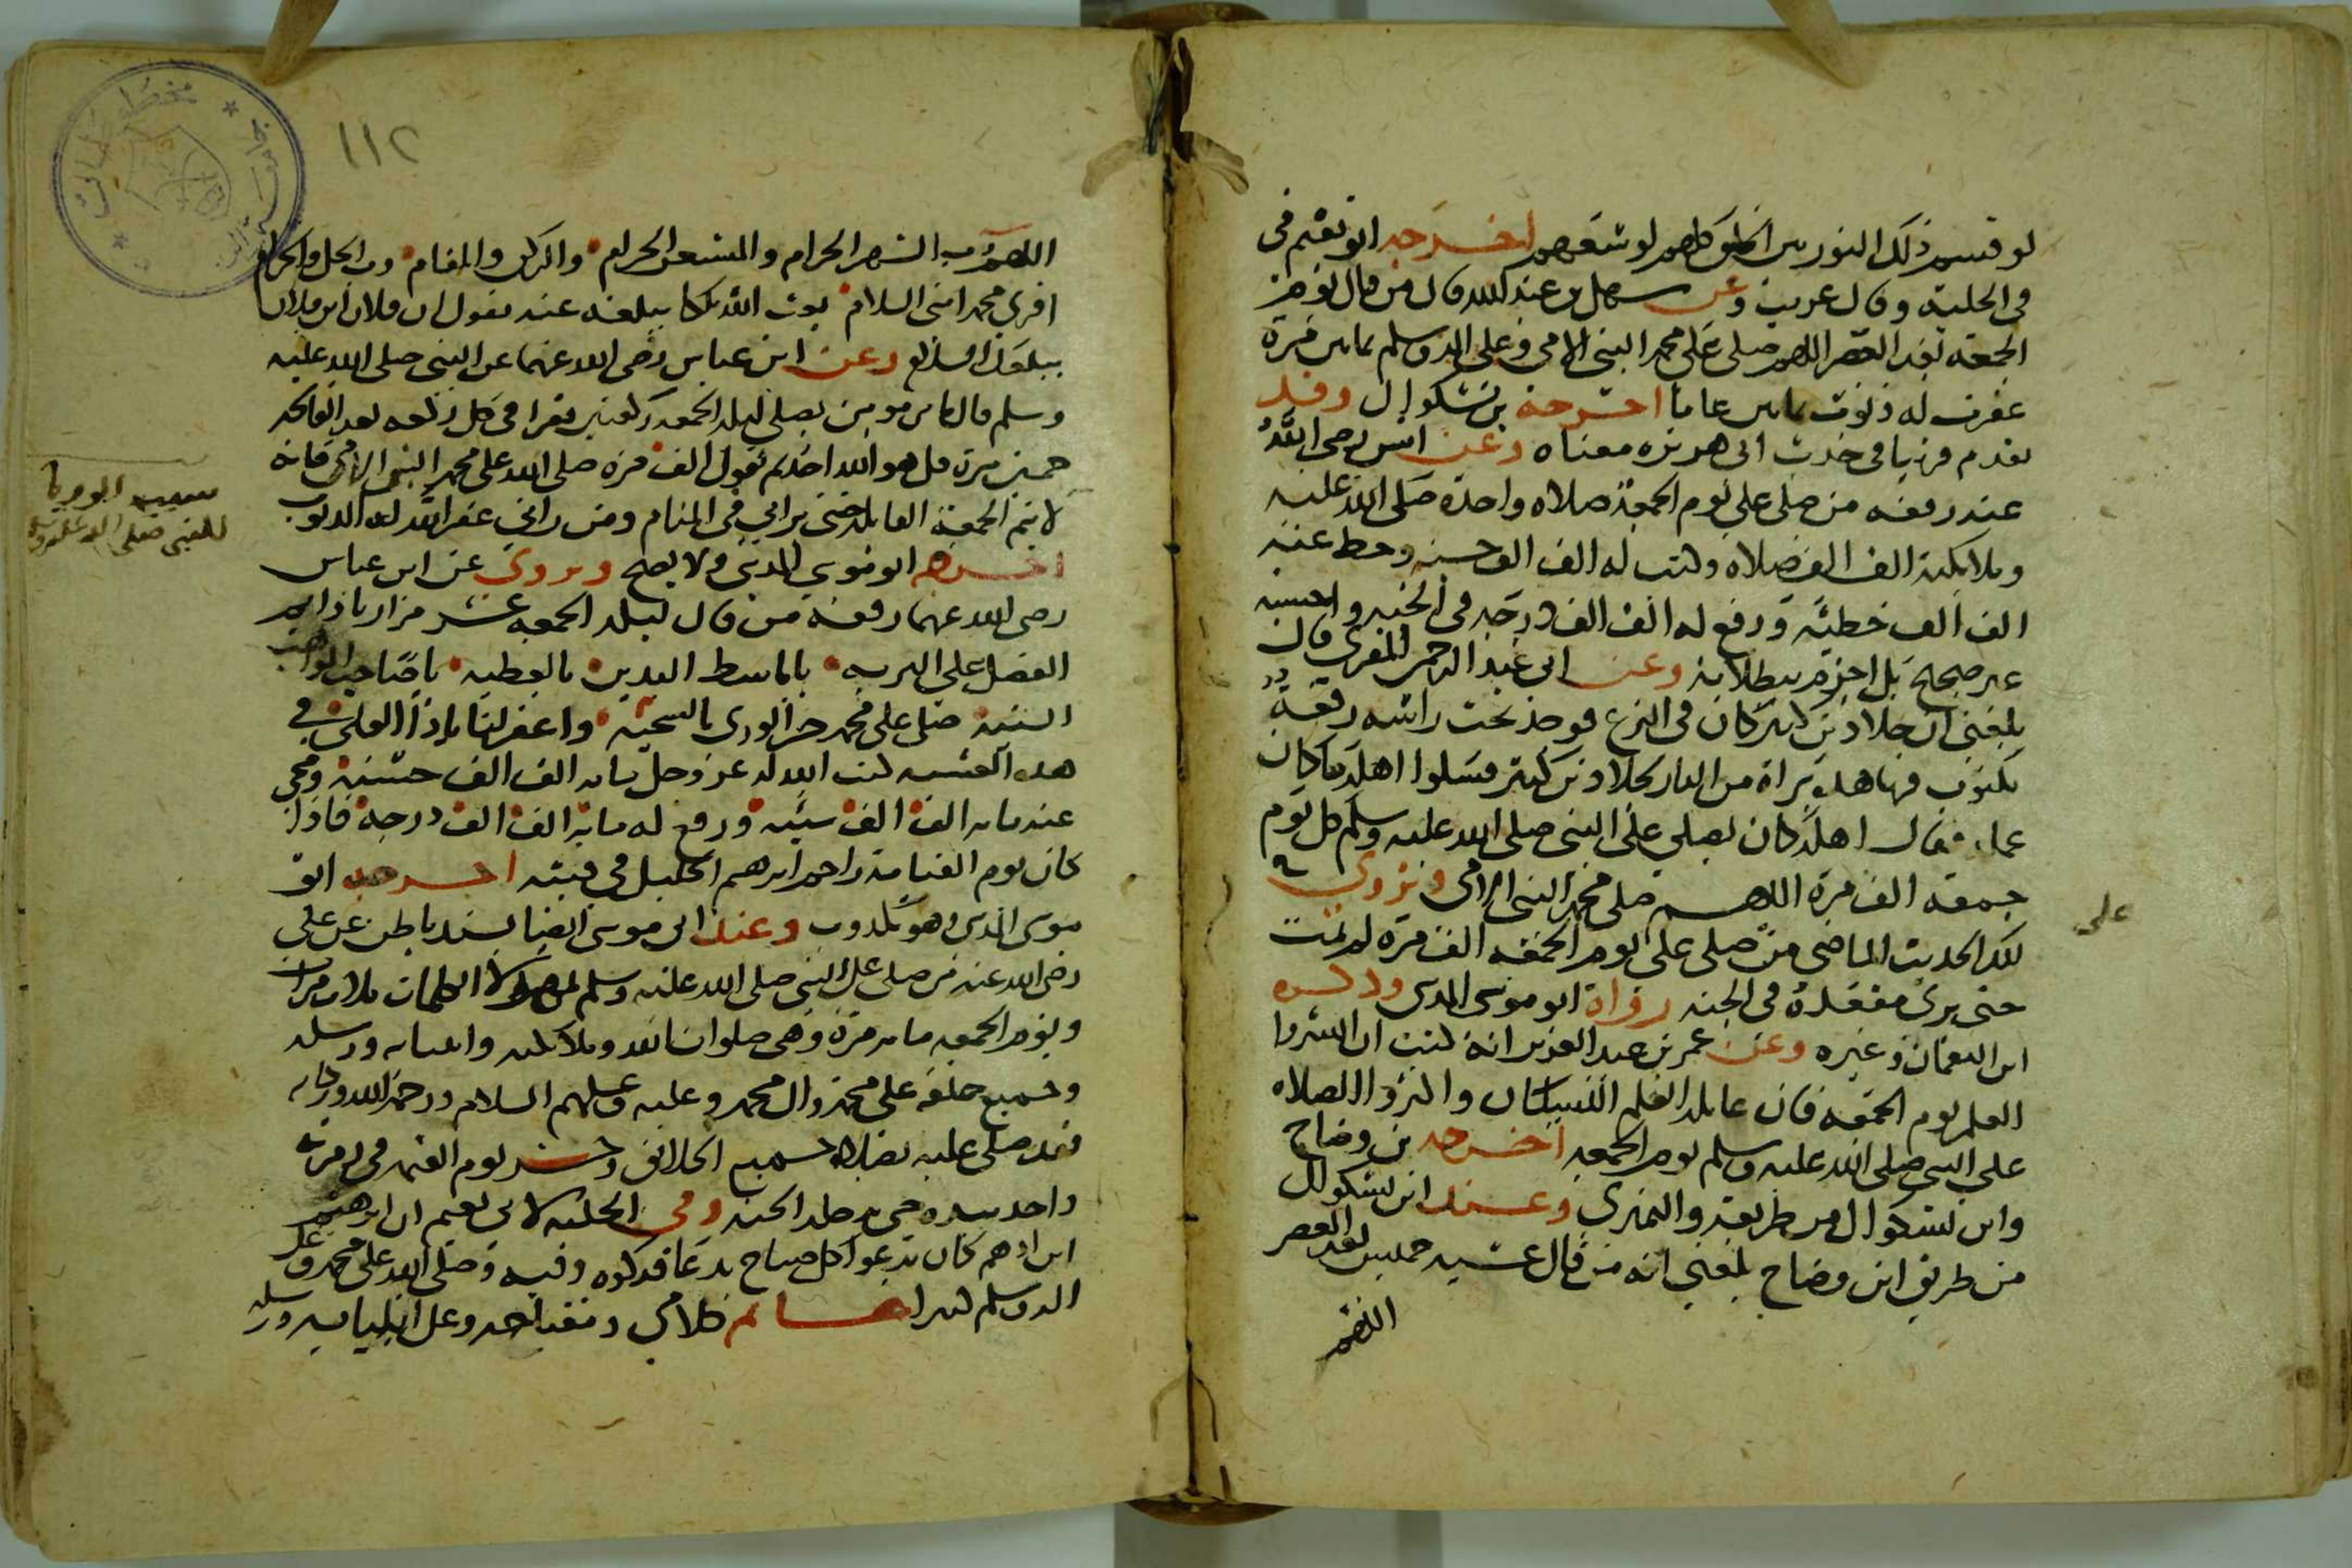 لو قسم ذلك النور بين الخلق كلهم لوسعهم اخرجه ابو نعيم في
في الحلية وقال غريب وعن سهل بن عبد الله قال من قال يوم
الجمعة بعد العصر اللهم صلي على محمد النبي الامي وعلى اله وسلم ثمانين مرة
غفرت له ذنوب ثمانين عاما اخرجه بن بشكوال وقد
تقدم قريبا في حديث ابي هريرة معناه وعن انس رضي الله
عنه رفعه من صلى علي يوم الجمعة صلاه واحدة صلى الله عليه
وملايكته الف الف صلاه وكتب له الف الف حسنه وحط عنه
الف الف خطيئة ورفع له الف الف درجه في الجنه واحسبه
غير صحيح بل اجزم ببطلانه وعن ابي عبد الرحمن المقري قال
بلغني ان خلاد بن كثير كان في النزع فوجد تحت راسه رقعة
مكتوب فيها هذه براة من النار لخلاد بن كثير فسلوا اهله ما كان
عمله فقال اهله كان يصلي على النبي صلى الله عليه وسلم كل يوم
جمعة الف مرة اللهم صلي محمد النبي الامي ويروي
على
لك الحديث الماضي من صلى علي يوم الجمعة الف مرة لم يمت
حتى يرى مقعده في الجنه رواه ابو موسى المديني وذكره
ابن النعمان وغيره وعن عمر بن عبد العزيز انه كتب ان انشروا
العلم يوم الجمعة فان غايلة العلم النسيان واكثروا الصلاه
على النبي صلى الله عليه وسلم يوم الجمعة اخرجه بن وضاح
وابن بشكوال من طريقه والنميري وعند ابن بشكوال
من طريق ابن وضاح بلغني انه من قال عشية خميس بعد العصر
اللهم
١١٢
اللهم رب الشهر الحرام والمشعر الحرام والركن والمقام ورب الحل والحرام
اقرئ محمد امني السلام بعث الله ملكا يبلغه عنه يقول ان فلان ابن فلان
يبلغك السلام وعن ابن عباس رضي الله عنهما عن النبي صلى الله عليه
وسلم قال ما من مومن يصلي ليلة الجمعه ركعتين يقرا في كل ركعه بعد الفاتحه
خمس مرة قل هو الله احد ثم يقول الف مره صلى الله على محمد النبي الامي فانه
لا يتم الجمعة القابلة حتى يراني في المنام ومن راني غفر الله له الذنوب
اخرجه ابو موسي المديني ولا يصح ويروي عن ابن عباس
رضي الله عنهما رفعه من قال ليله الجمعه عشر مرار يا دايم
الفضل على البريه يا باسط اليدين بالعطيه يا صاحب المواهب
السنيه صل على محمد خير الوري بالسجيه واغفر لنا يا ذا العلى في
هذه العشيه كتب الله له عز وجل مايه الف الف حسنة ومحى
عنه مايه الف الف سيئه ورفع له مايه الف الف درجة فاذا
كان يوم القيامة زاحم ابرهيم الخليل في قبته اخرجه ابو
موسى المديني وهو مكذوب وعند ابي موسى ايضا بسند باطل عن علي
رضي الله عنه من صلى على النبي صلى الله عليه وسلم بهولا الكلمات ثلاث مرات
ويوم الجمعه مايه مرة وهي صلوات الله وملايكته وانبيايه ورسله
وجميع خلقه على محمد وال محمد وعليه وعليهم السلام ورحمة الله وبركاته
فقد صلى عليه بصلاه جميع الخلايق وحشر يوم القيمه في زمرته
واخذ بيده حتى يدخله الجنه وفي الحليه لابي نعيم ان ابرهيم
ابن ادهم كان يدعوا كل صباح بدعا فذكره وفيه وصلى الله على محمد وعلى
اله وسلم كثيرا خاتم كلامي ومفتاحه وعلى انبيايه ورسله
للنبي صلى الله عليه وسلم